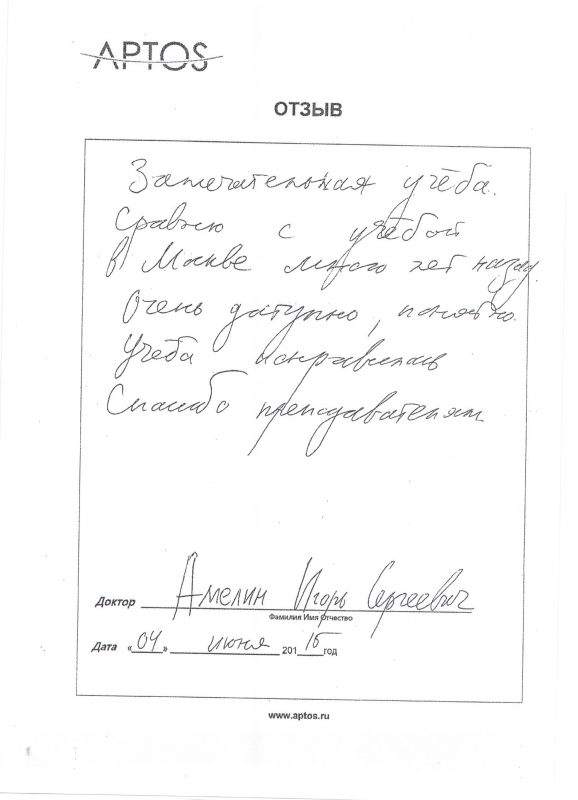 APTOS
ОТЗЫВ
Замечательная учёба.
Сравню с учёбой
в Москве много лет назад.
Очень доступно, понятно.
Учеба понравилась
Спасибо преподавателям
Доктор Амелин Игорь Сергеевич
Фамилия Имя Отчество
Дата «04» июня 201 15 год
www.aptos.ru